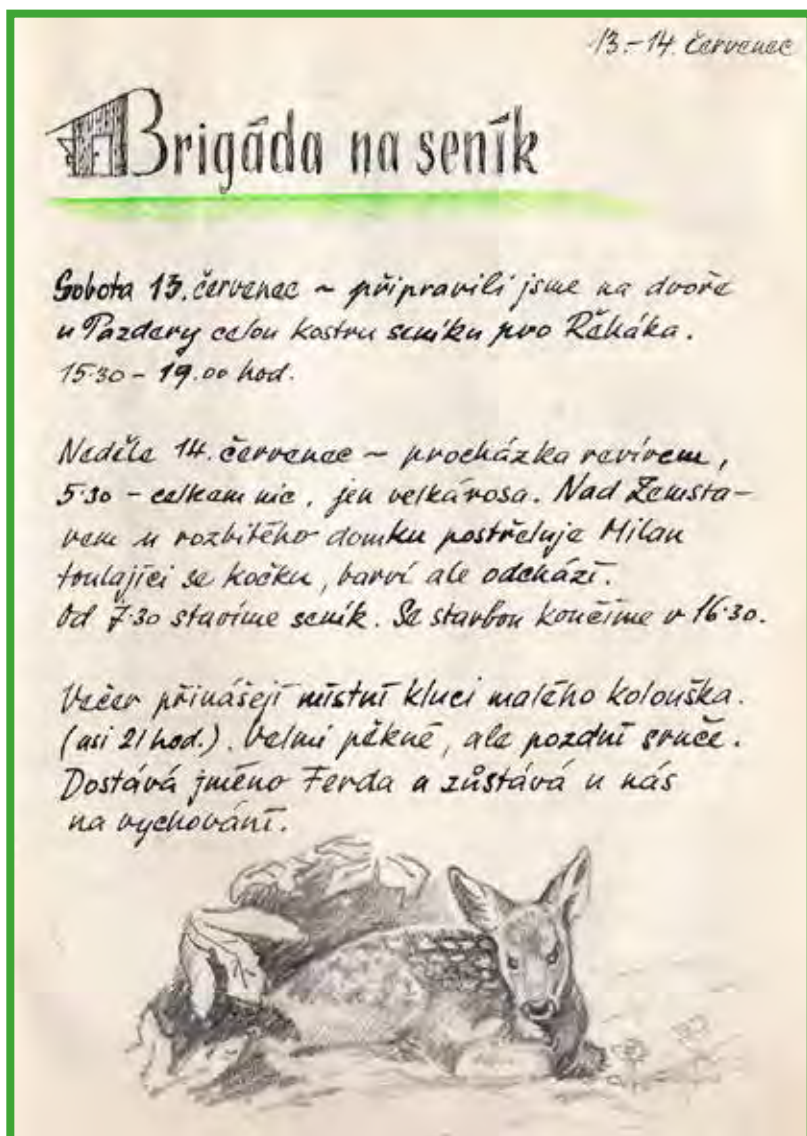 13.-14. červenec
Brigáda na seník
Sobota 13. červenec ~ připravili jsme na dvoře
u Pazdery celou kostru seníku pro Řeháka.
15.30 - 19.00 hod.
Neděle 14. červenec ~ procházka revírem,
5.30 - celkem nic, jen velká rosa. Nad Zemsta-
vem u rozbitého domku postřeluje Milan
toulající se kočku, barví ale odchází.
Od 7.30 stavíme seník. Se stavbou končíme v 16.30.
Večer přinášejí místní kluci malého kolouška.
(asi 21 hod.). Velmi pěkné, ale pozdní srnče.
Dostává jméno Ferda a zůstává u nás
na vychování.